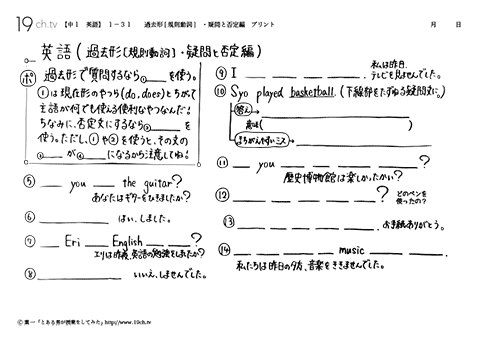 19ch.tv 【中1 英語】 1－31 過去形[規則動詞]・疑問と否定編 プリント 月 日
英語(過去形[規則動詞]・疑問と否定編)
ポ 過去形で質問するなら①____を使う。
①は現在形のやつら(do, does)とちがって
主語が何でも使える便利なやつなんだ！
ちなみに、否定文にするなら②____を
使う。ただし、①や②を使うと、その文の
③____が④____になるから注意してね！
⑤ ____ you ____ the guitar?
あなたはギターをひきましたか？
⑥ ____ はい、しました。
⑦ ____ Eri ____ English ____ ____?
エリは昨夜、英語の勉強をしましたか？
⑧ ____ いいえ、しませんでした。
⑨ I ____ ____ ____ ____. 私は昨日、テレビを見ませんでした。
⑩ Syo played basketball. (下線部をたずねる疑問文に。)
答え
意味( )
まちがえやすいミス
⑪ ____ you ____ ____ ____ ____?
歴史博物館は楽しかったかい？
⑫ ____ ____ ____ ____ ____? どのペンを使ったの？
⑬ ____ ____ ____ ____ ____. お手紙ありがとう。
⑭ ____ ____ ____ music ____ ____.
私たちは昨日の夕方、音楽をききませんでした。
©葉一「とある男が授業をしてみた」http://www.19ch.tv